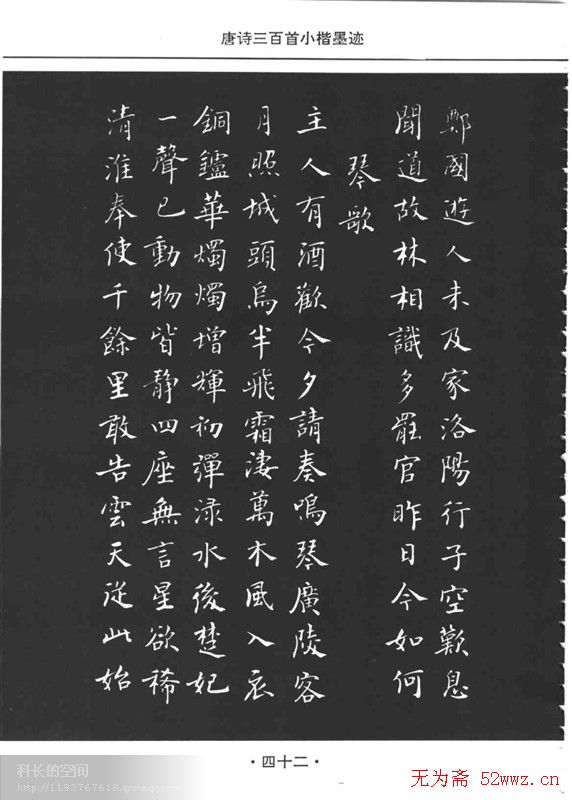 唐诗三百首小楷墨迹
鄭國遊人未及家洛陽行子空歎息
聞道故林相識多罷官昨日今如何
琴歌
主人有酒歡今夕請奏鳴琴廣陵客
月照城頭烏半飛霜淒萬木風入衣
銅鑪華燭燭增輝初彈淥水後楚妃
一聲已動物皆靜四座無言星欲稀
清淮奉使千餘里敢告雲天從此始
·四十二·
科长的空间
http://1193767618.qzone.qq.com
无为斋 52wwz.cn